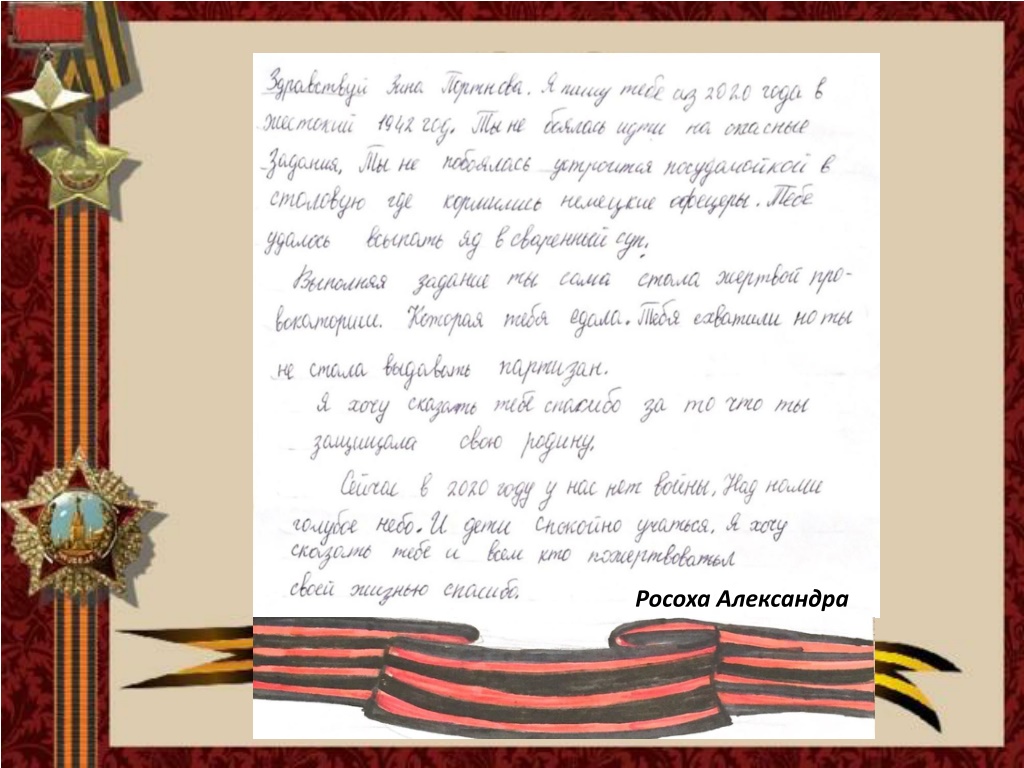 Здравствуй Зина Портнова. Я пишу тебе из 2020 года в
жестокий 1942 год. Ты не боялась идти на опасные
задания. Ты не побоялась устроится посудамойкой в
столовую где кормились немецкие офецеры. Тебе
удалось всыпать яд в сваренный суп.
Выполняя задание ты сама стала жертвой про-
вокаторши. Которая тебя сдала. Тебя схватили но ты
не стала выдавать партизан.
Я хочу сказать тебе спасибо за то что ты
защищала свою родину.
Сейчас в 2020 году у нас нет войны. Над нами
голубое небо. И дети спокойно учаться. Я хочу
сказать тебе и всем кто пожертвовал
своей жизнью спасибо.
Росоха Александра